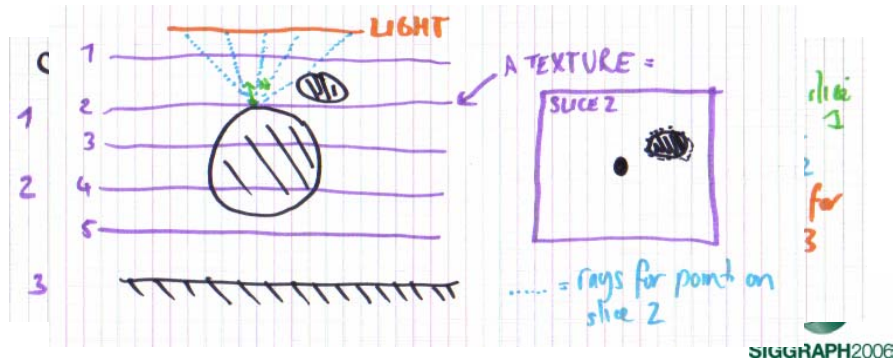 LIGHT
1
2
3
4
5
A TEXTURE =
SLICE 2
..... = rays for point on
slice 2
1
2
3
slice
1
2
for
3
SIGGRAPH2006